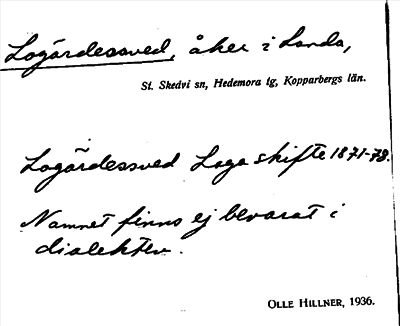 Logårdessved, åker i Landa,
St. Skedvi sn, Hedemora tg, Kopparbergs län.
Logårdessved Laga skifte 1871-78.
Namnet finns ej bevarat i
dialekten.
OLLE HILLNER, 1936.